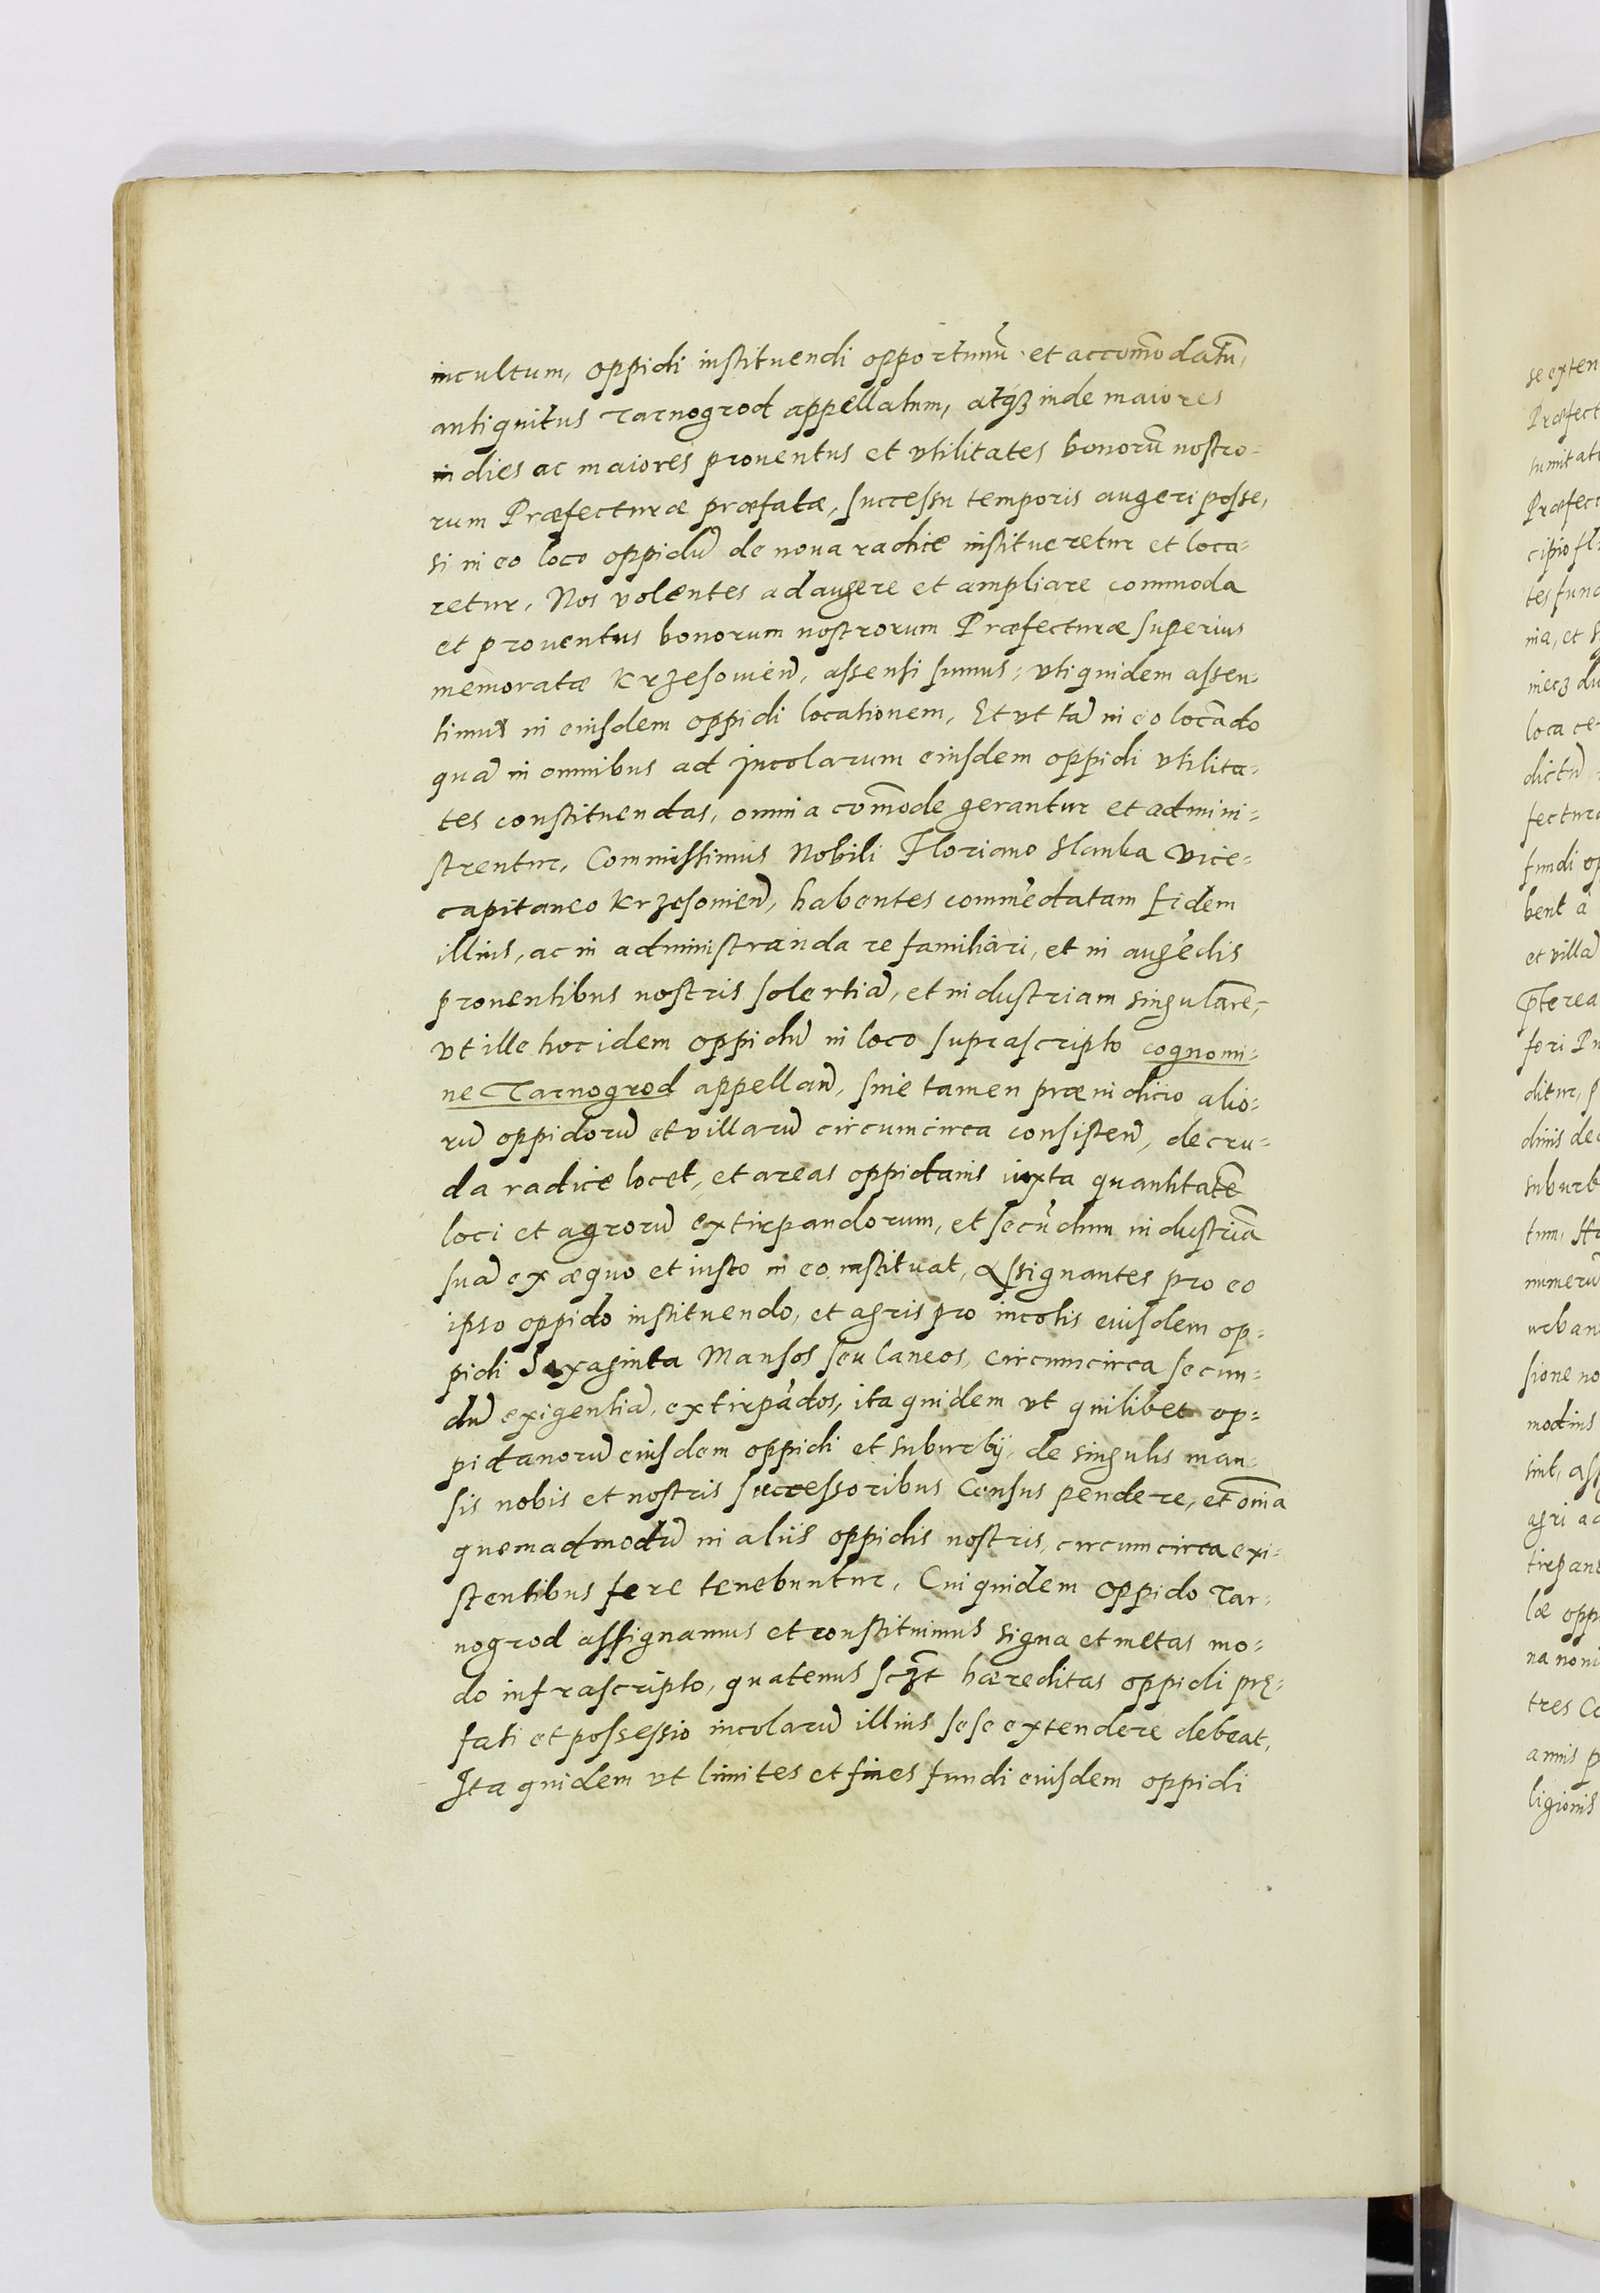 incultum, oppidi instituendi opportunū et accom̄odatū,
antiquitus Tarnogrod appellatum, atq́ꝫ inde maiores
in dies ac maiores prouentus et vtilitates bonorū nostro-
rum Præfecturæ præfatæ, successu temporis augeri posse,
si in eo loco oppidū de noua radice institueretur et loca-
retur, Nos volentes adaugere et ampliare commoda
et prouentus bonorum nostrorum Præfecturæ superius
memoratæ Krzesouien̄, assensi sumus, vti quidem assen-
timur in eiusdem oppidi locationem, Et vt tā in eo locādo
quā in omnibus ad Incolarum eiusdem oppidi vtilita-
tes constituendas, omnia com̄ode gerantur et admini-
strentur, Commissimus Nobili Floriano Slanka Vice-
capitaneo Krzesouien̄, habentes commēdatam fidem
illius, ac in administranda re familiari, et in augēdis
prouentibus nostris solertiā, et industriam singularē,
vt ille hoc idem oppidū in loco suprascripto cognomi-
ne Tarnogrod appellan̄, sine tamen præiudicio alio-
rū oppidorū et villarū circumcirca consisten̄, de cru-
da radice locet, et areas oppidanis iuxta quantitatē
loci et agrorū extirpandorum, et secūdum industriā
suā ex æquo et iusto in eo instituat, Assignantes pro eo
ipso oppido instituendo, et agris pro incolis eiusdem op-
pidi Sexaginta Mansos seu laneos, circumcirca secun-
dū exigentiā, extirpādos, ita quidem vt quilibet op-
pidanorū eiusdem oppidi et suburbij, de singulis man-
sis nobis et nostris successoribus Census pendere, et om̄ia
quemadmodū in aliis oppidis nostris, circumcirca exi-
stentibus fere tenebuntur, Cui quidem oppido Tar-
nogrod assignamus et constituimus signa et metas mo-
do infrascripto, quatenus scꝫt hæreditas oppidi prę-
fati et possessio incolarū illius sese extendere debeat,
Ita quidem vt limites et fines fundi eiusdem oppidi
se exten
Præfect
Præfect
tes func
loca ce
dictū
fectur
fundi op
bent a
et villā
fori
ditur,
suburb
numerū
urban
sione no
modius
agri ad
tirpan
læ opp
tres
annis p
ligionis